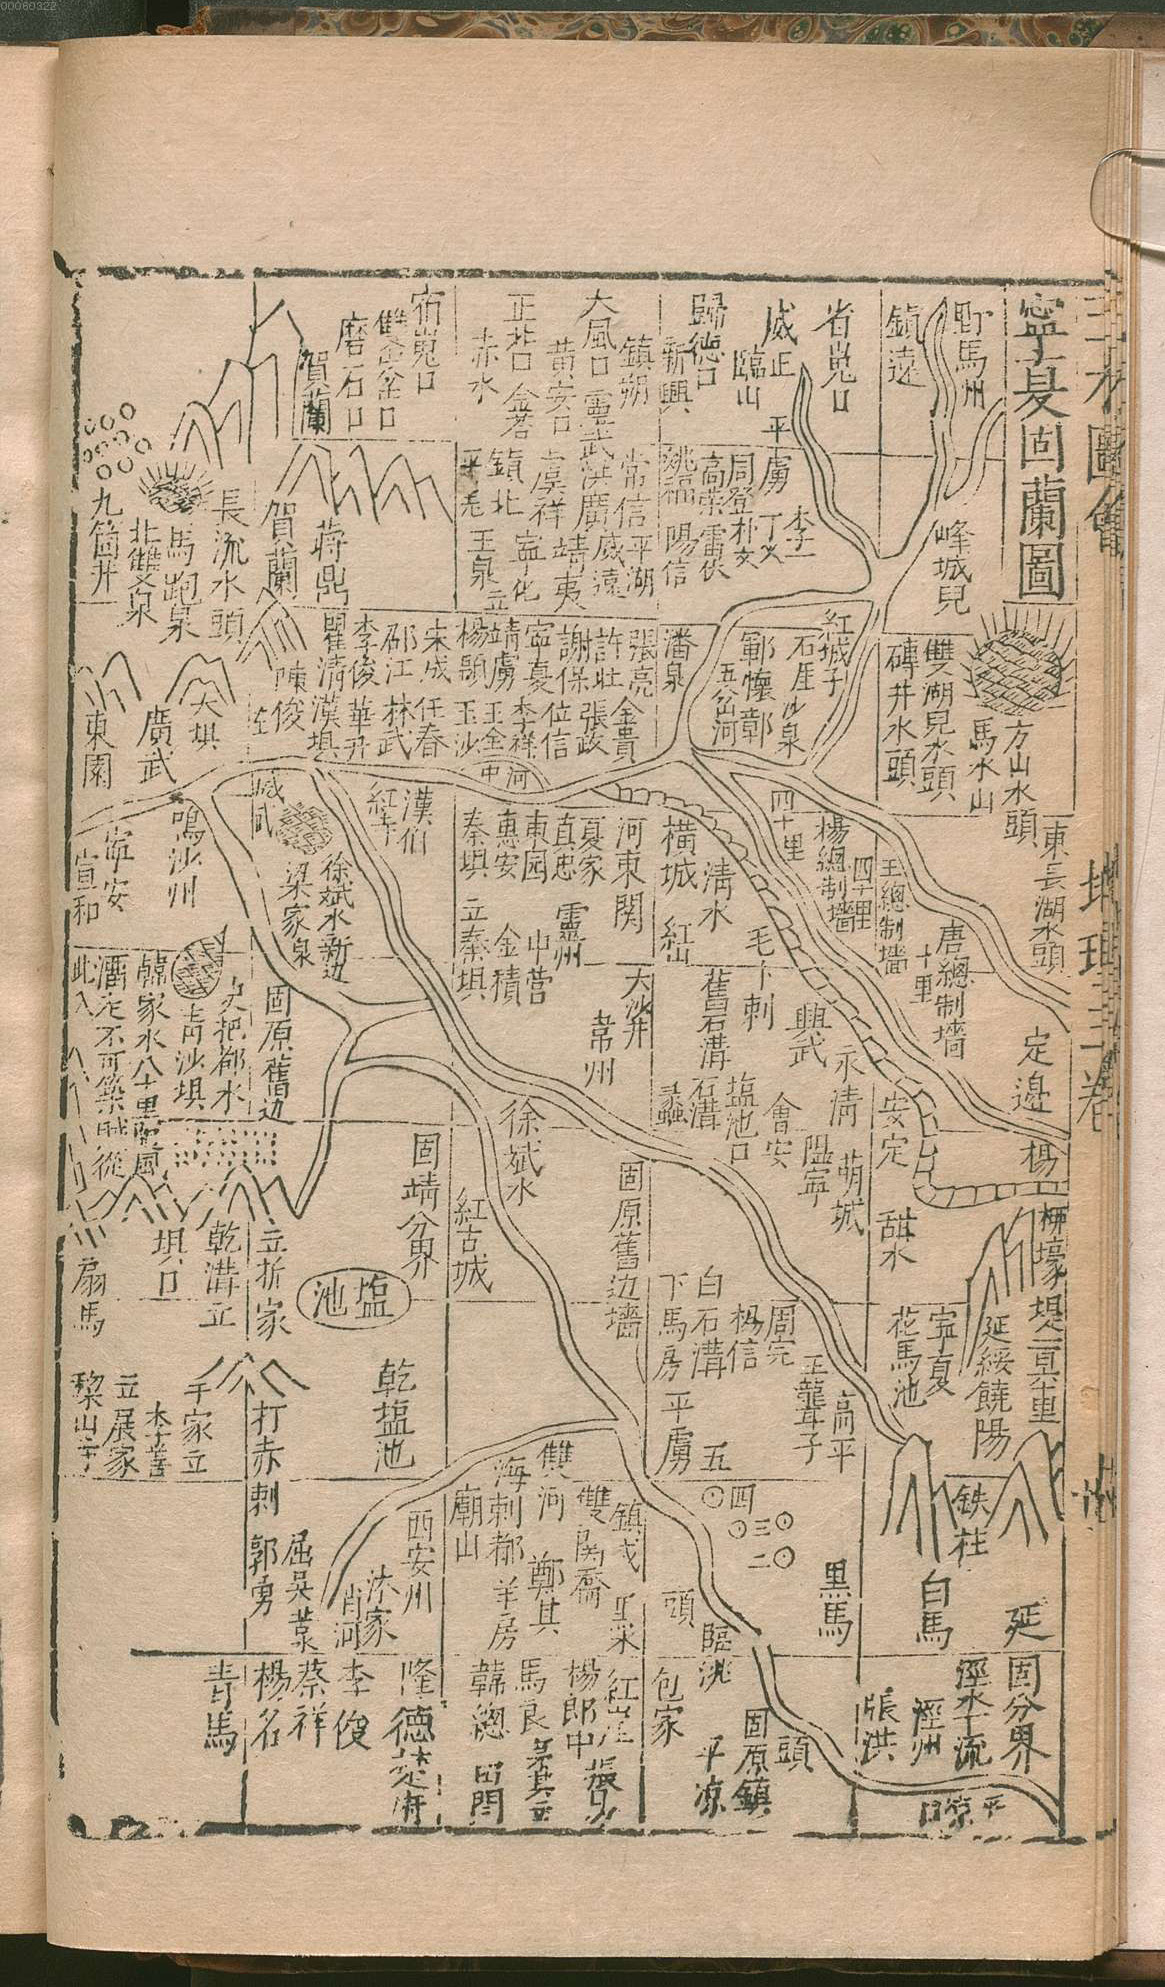 00080322
三才圖會
地理三卷
寧夏固蘭圖
野馬州
鎮遠
省嵬口
威正
臨山
平虜
歸德口
新興
鎮朔
大風口
靈武
黃安口
正北口
金塔
赤水
宿嵬口
雙金口
磨石口
賀蘭
峰城兒
丁义
李一
同登
朴文
高榮
雷伏
姚福
陽信
常信
平湖
洪廣
威遠
靖夷
虞祥
寧化
鎮北
玉泉
平羌
蔣鼎
賀蘭
長流水頭
馬跑泉
北雙泉
九箇井
方山水頭
馬水山
雙湖兒水頭
磚井水頭
紅城子
石崖
沙泉
鄆懷
鄣
五岔河
潘泉
張亮
金貴
許壯
張政
謝保
位信
寧夏
李祥
靖虜
王全
楊顯
玉沙
宋成
任春
邵江
林武
李俊
華升
瞿清
漢垻
陳俊
大垻
廣武
東園
中河
漢伯
東長湖水頭
四十里
楊總制墻
四十里
王總制墻
唐總制墻
十里
橫城
清水
紅山
毛卜剌
興武
永清
河東関
夏家
真忠
東园
惠安
秦垻
靈州
中营
金積
立秦垻
鳴沙州
寧安
宣和
徐斌水新边
梁家泉
固原舊边
大沙井
韋州
舊石溝
石溝
塩池口
會安
隰寧
萌城
定邊
楊
柳壕堤一百里
安定
甜水
青沙垻
韓家水八十里
酒定不可築
此入
徐斌水
紅古城
固靖分界
固原舊边墻
塩池
立折家
乾溝立
垻口
扇馬
白石溝
下馬房
楊信
周完
王龍耳子
高平
平虜
寧夏
花馬池
延綏饒陽
乾塩池
打赤剌
于家立
李善
立展家
五
四
三
二
頭
鐵柱
白馬
黑馬
延
固分界
雙河
海剌都
廟山
雙関
鎮戎
鄭其
羊房
西安州
沐家
肖河
屈吴
郭勇
臨洮
包家
頭
固原鎮
平凉
張洪
涇州
涇水下流
平凉口
紅崖
楊郎中
馬良
韓總
隆德
李俊
蔡祥
楊名
青馬